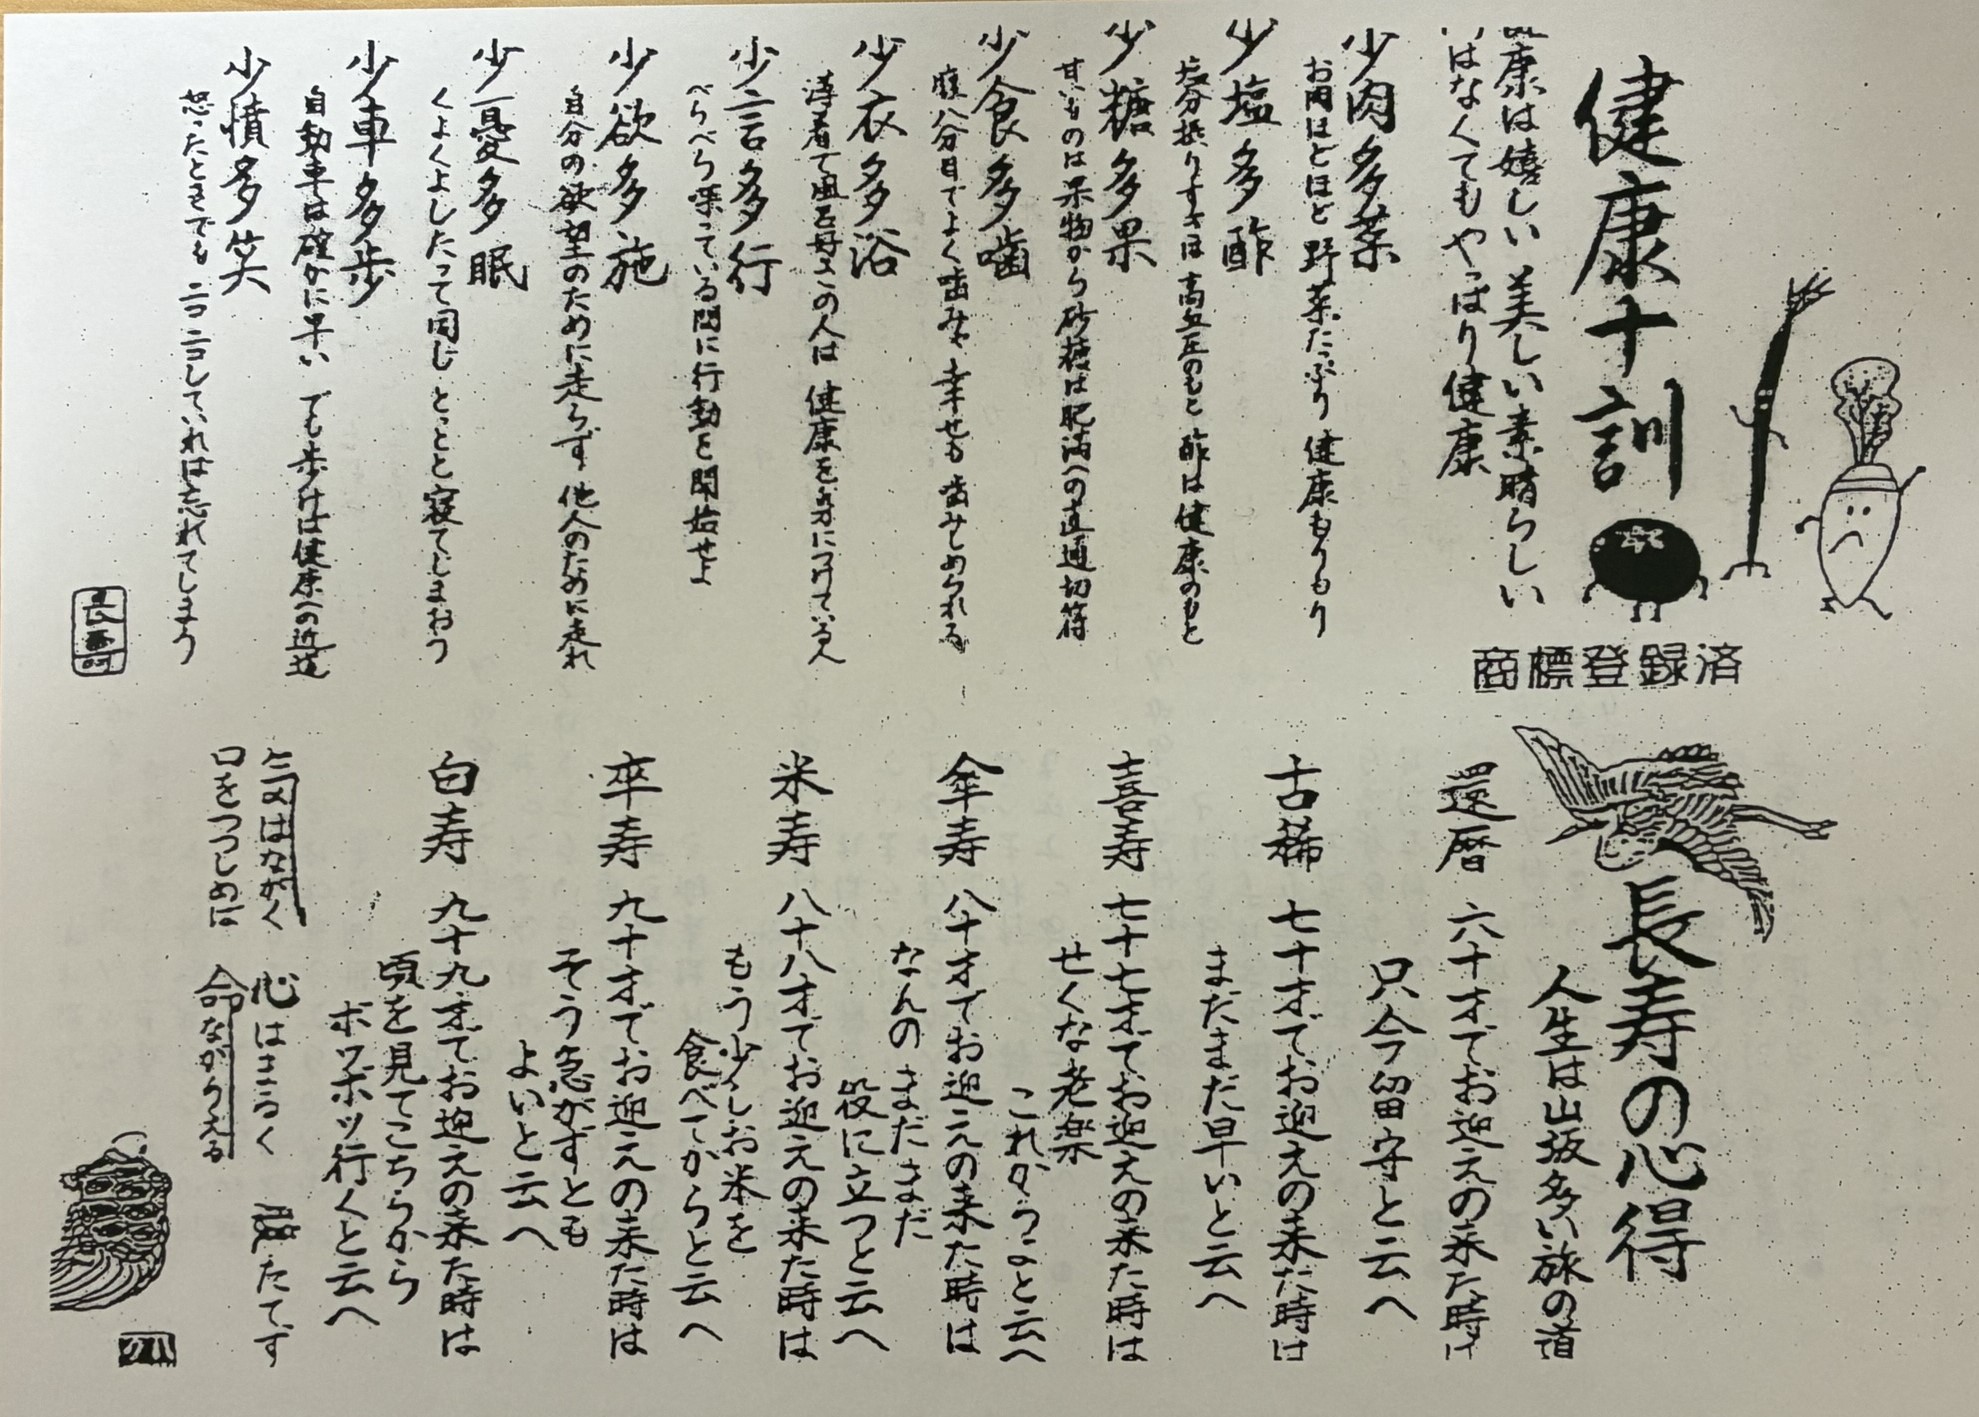 健康十訓
康は嬉しい 美しい 素晴らしい
はなくてもやっぱり健康
少肉多菜
お肉ほどほど 野菜たっぷり 健康もりもり
少塩多酢
塩分摂りすぎは 高血圧のもと 酢は健康のもと
少糖多果
甘いものは果物から 砂糖は肥満への直通切符
少食多噛
腹八分目でよく噛みゃ 幸せも 歯みしめられる
少衣多浴
薄着で風呂好きの人は 健康を身につけている人
少言多行
べらべら喋っている間に行動を開始せよ
少欲多施
自分の欲望のために走らず 他人のために走れ
少憂多眠
くよくよしたって同じ とっとと寝てしまおう
少車多歩
自動車は確かに早い でも歩けば健康への近道
少憤多笑
怒ったときでも ニコニコしていれば忘れてしまう
商標登録済
長寿の心得
人生は山坂多い旅の道
還暦 六十才でお迎えの来た時は
只今留守と云へ
古稀 七十才でお迎えの来た時は
まだまだ早いと云へ
喜寿 七十七才でお迎えの来た時は
せくな老楽
これからよと云へ
傘寿 八十才でお迎えの来た時は
なんのまだまだ
役に立つと云へ
米寿 八十八才でお迎えの来た時は
もう少しお米を
食べてからと云へ
卒寿 九十才でお迎えの来た時は
そう急がずとも
よいと云へ
白寿 九十九才でお迎えの来た時は
頃を見てこちらから
ボツボツ行くと云へ
気はながく 心はまるく 腹たてず
口をつつしめば 命ながらえる